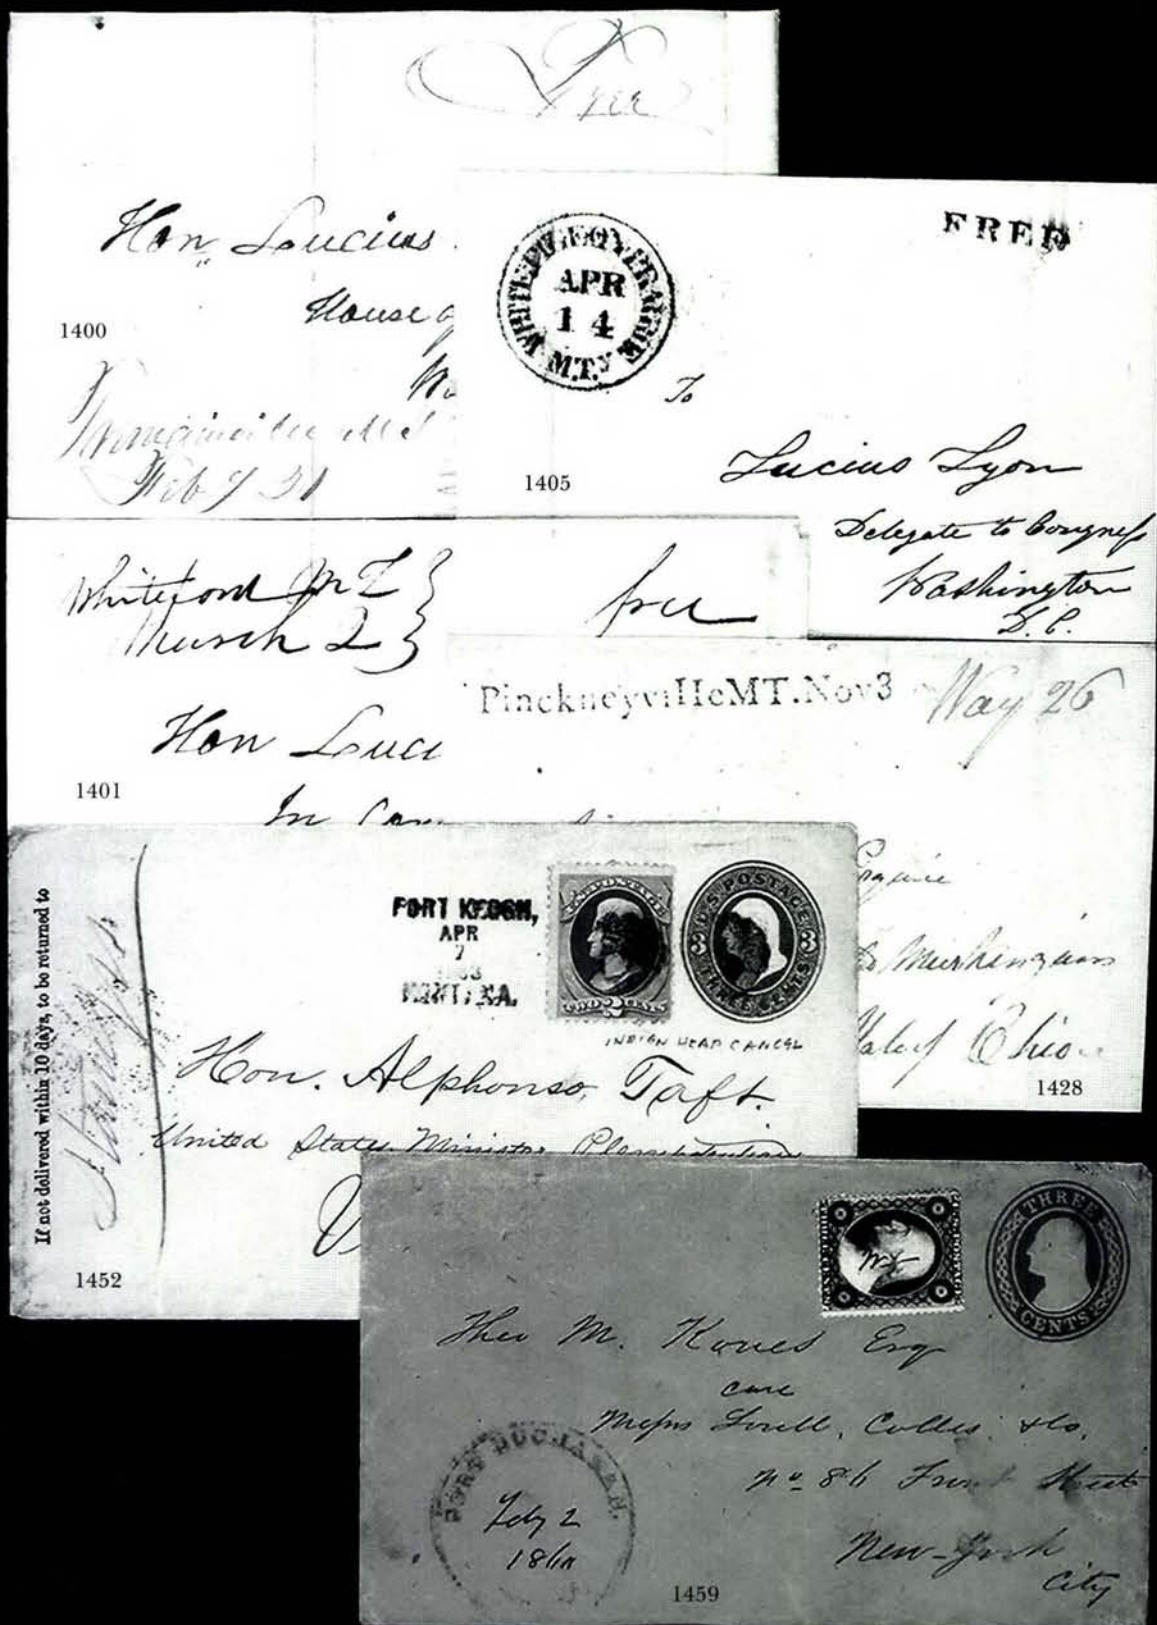 Free
Hon, Lucius
House of
1400
Feb 7 31
FREE
APR
14
M.T.Y
To
1405
Lucius Lyon
Delegate to Congress
Washington
D.C.
Whiteford M T
March 2
free
Hon Luci
1401
In Con
PinckneyvilleMT.Nov3
Way 26
Esquire
Ohio
1428
If not delivered within 10 days, to be returned to
FORT KEOGH,
APR
7
MONTANA.
U.S. POSTAGE
TWO 2 CENTS
U.S. POSTAGE
3 3
THREE CENTS
INDIAN HEAD CANCEL
Hon. Alphonso Taft.
United States Minister Plenipotentiary
V
1452
THREE
CENTS
Theo M. Esq
care
Messrs Lovell, Colles & Co,
No 86 Front Street
New-York
City
FORT BUCHANAN.
Feby 2
1459